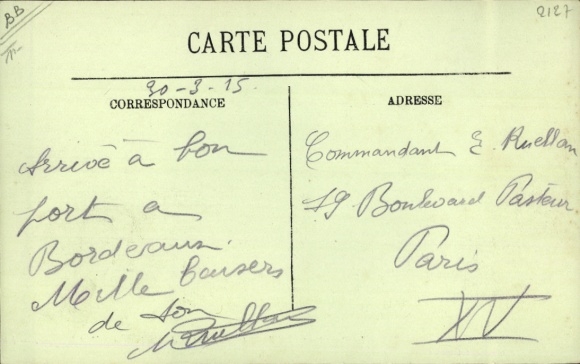 BB
2127
CARTE POSTALE
30-3-15.
CORRESPONDANCE
Arrivé à bon
port à
Bordeaux.
Mille baisers
de ton
Ruellan
ADRESSE
Commandant E. Ruellan
79 Boulevard Pasteur
Paris
XV